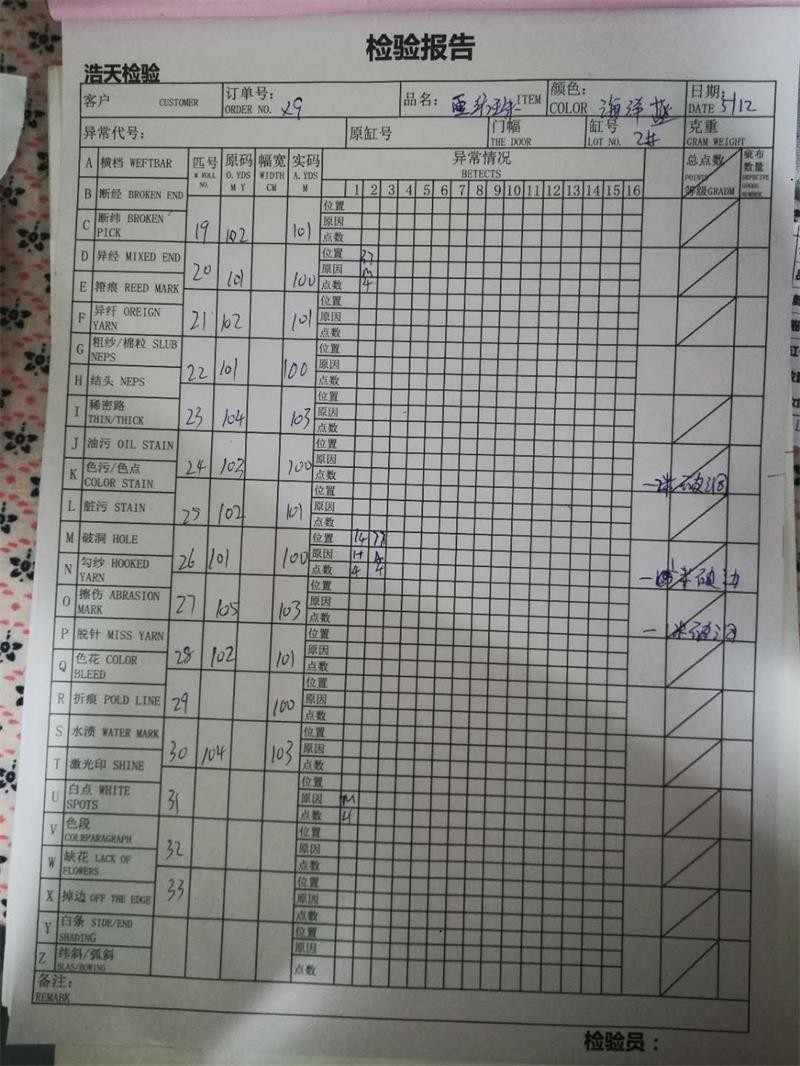 检验报告
浩天检验
客户 CUSTOMER 订单号: ORDER NO. x9 品名: ITEM 颜色: COLOR 海洋 日期: DATE 5/12
异常代号: 原缸号 门幅 THE DOOR 缸号 LOT NO. 2# 克重 GRAM WEIGHT
匹号 W ROLL NO. 原码 O.YDS M Y 幅宽 WIDTH CM 实码 A.YDS M 异常情况 BETECTS 总点数 POINTS 等级GRADM 疵布数量 DEFECTIVE GOODS NUMBER
1 2 3 4 5 6 7 8 9 10 11 12 13 14 15 16
A 横档 WEFTBAR
B 断经 BROKEN END
C 断纬 BROKEN PICK
D 异经 MIXED END
E 筘痕 REED MARK
F 异纤 OREIGN YARN
G 粗纱/棉粒 SLUB NEPS
H 结头 NEPS
I 稀密路 THIN/THICK
J 油污 OIL STAIN
K 色污/色点 COLOR STAIN
L 脏污 STAIN
M 破洞 HOLE
N 勾纱 HOOKED YARN
O 擦伤 ABRASION MARK
P 脱针 MISS YARN
Q 色花 COLOR BLEED
R 折痕 POLD LINE
S 水渍 WATER MARK
T 激光印 SHINE
U 白点 WHITE SPOTS
V 色段 COLEPARAGRAPH
W 缺花 LACK OF FLOWERS
X 掉边 OFF THE EDGE
Y 白条 SIDE/END SHADING
Z 纬斜/弧斜 BLAS/BOWING
19 102 101 位置 原因 点数
20 101 100 位置 37 原因 M 点数 4
21 102 101 位置 原因 点数
22 101 100 位置 原因 点数
23 104 103 位置 原因 点数
24 103 100 位置 原因 点数 破洞
25 102 101 位置 原因 点数
26 101 100 位置 14 77 原因 H 点数 4 4 米破边
27 105 103 位置 原因 点数 一1米破洞
28 102 101 位置 原因 点数
29 100 位置 原因 点数
30 104 103 位置 原因 点数
31 位置 原因 M 点数 4
32 位置 原因 点数
33 位置 原因 点数
位置 原因 点数
备注:
REMABK
检验员：